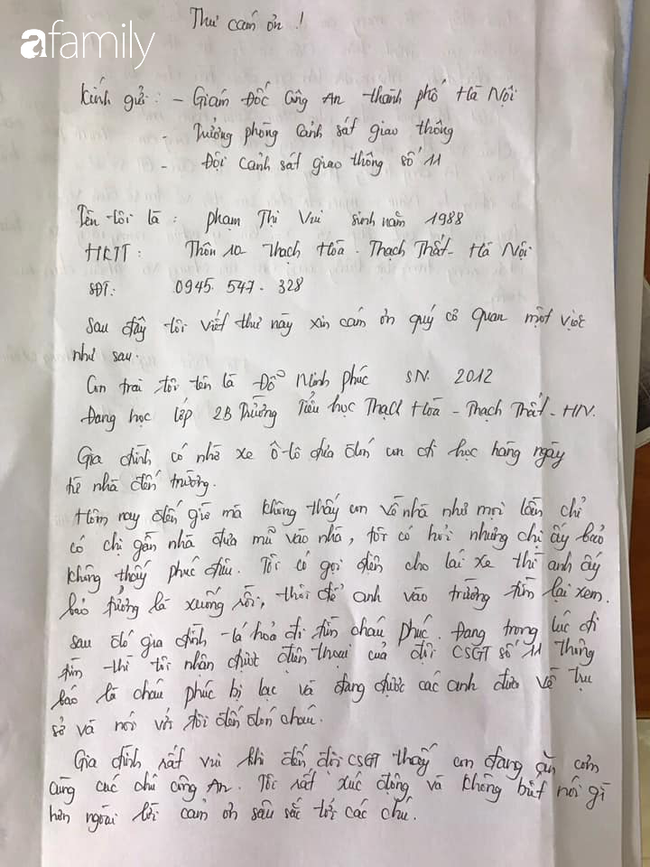 afamily
Thư cám ơn!
Kính gửi: - Giám Đốc Công An thành phố Hà Nội
- Trưởng phòng cảnh sát giao thông
- Đội cảnh sát giao thông số 11
Tên tôi là: Phạm Thị Vui sinh năm 1988
HKTT: Thôn 10 Thạch Hòa - Thạch Thất - Hà Nội
SĐT: 0945. 547. 328
Sau đây tôi viết thư này xin cám ơn quý cơ quan một việc
như sau.
Con trai tôi tên là Đỗ Minh Phúc SN. 2012
Đang học lớp 2B Trường Tiểu học Thạch Hoà - Thạch Thất - HN.
Gia đình có nhờ xe ô-tô đưa đón con đi học hàng ngày
từ nhà đến trường.
Hôm nay đến giờ mà không thấy con về nhà như mọi lần chỉ
có chị gần nhà đưa mũ vào nhà, tôi có hỏi nhưng chị ấy bảo
không thấy phúc đâu. Tôi có gọi điện cho lái xe thì anh ấy
bảo tưởng là xuống rồi, thôi để anh vào trường tìm lại xem.
Sau đó gia đình tá hoả đi tìm cháu Phúc. Đang trong lúc đi
tìm thì tôi nhận được điện thoại của đội CSGT số 11 thông
báo là cháu phúc bị lạc và đang được các anh đưa về trụ
sở và nói với tôi đến đón cháu.
Gia đình rất vui khi đến đội CSGT thấy con đang ăn cơm
cùng các chú công An. Tôi rất xúc động và không biết nói gì
hơn ngoài lời cảm ơn sâu sắc tới các chú.